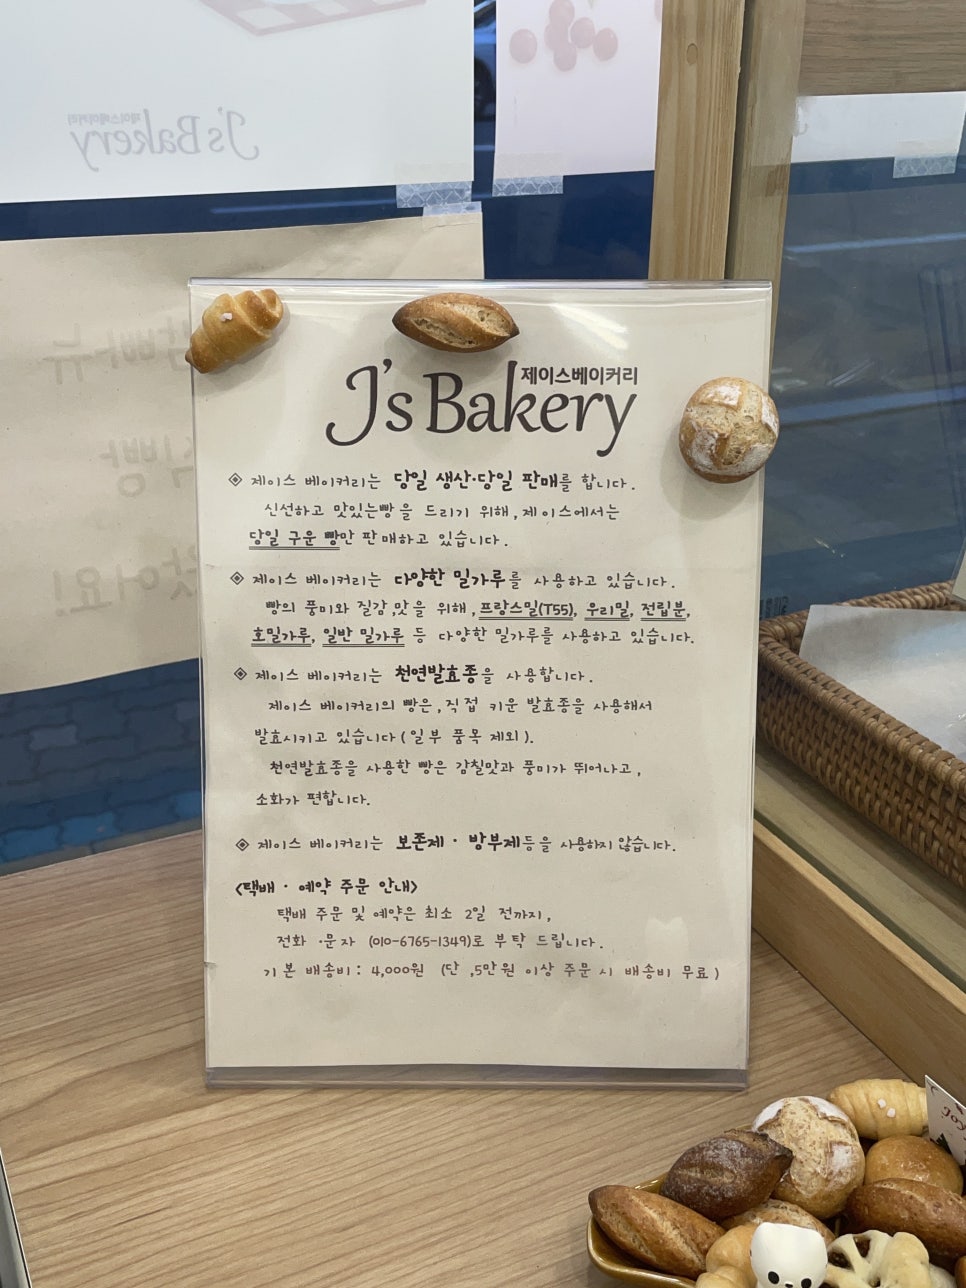 J's Bakery 제이스베이커리
J's Bakery 제이스베이커리
◈ 제이스 베이커리는 당일 생산·당일 판매를 합니다.
신선하고 맛있는빵을 드리기 위해,제이스에서는
당일 구운 빵만 판매하고 있습니다.
◈ 제이스 베이커리는 다양한 밀가루를 사용하고 있습니다.
빵의 풍미와 질감,맛을 위해,프랑스밀(T55), 우리밀, 전립분,
호밀가루, 일반 밀가루 등 다양한 밀가루를 사용하고 있습니다.
◈ 제이스 베이커리는 천연발효종을 사용합니다.
제이스 베이커리의 빵은,직접 키운 발효종을 사용해서
발효시키고 있습니다(일부 품목 제외).
천연발효종을 사용한 빵은 감칠맛과 풍미가 뛰어나고,
소화가 편합니다.
◈ 제이스 베이커리는 보존제 · 방부제등을 사용하지 않습니다.
<택배 · 예약 주문 안내>
택배 주문 및 예약은 최소 2일 전까지,
전화 ·문자 (010-6765-1349)로 부탁 드립니다.
기본 배송비: 4,000원 (단 ,5만원 이상 주문 시 배송비 무료)